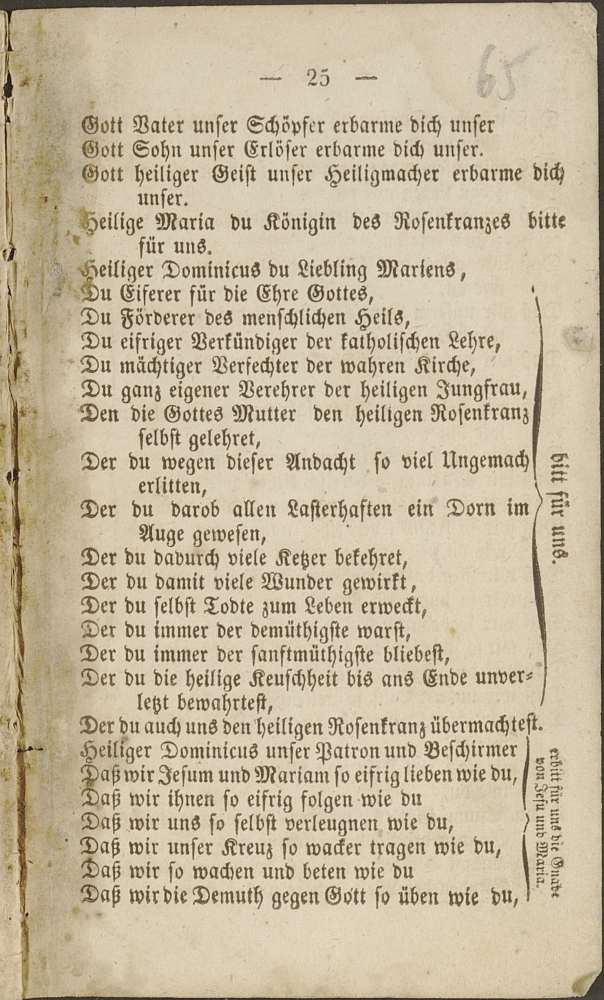 — 25 —
65
Gott Vater unser Schöpfer erbarme dich unser
Gott Sohn unser Erlöser erbarme dich unser.
Gott heiliger Geist unser Heiligmacher erbarme dich
unser.
Heilige Maria du Königin des Rosenkranzes bitte
für uns.
Heiliger Dominicus du Liebling Mariens,
Du Eiferer für die Ehre Gottes,
Du Förderer des menschlichen Heils,
Du eifriger Verkündiger der katholischen Lehre,
Du mächtiger Verfechter der wahren Kirche,
Du ganz eigener Verehrer der heiligen Jungfrau,
Den die Gottes Mutter den heiligen Rosenkranz
selbst gelehret,
Der du wegen dieser Andacht so viel Ungemach
erlitten,
Der du darob allen Lasterhaften ein Dorn im
Auge gewesen,
Der du dadurch viele Ketzer bekehret,
Der du damit viele Wunder gewirkt,
Der du selbst Todte zum Leben erweckt,
Der du immer der demüthigste warst,
Der du immer der sanftmüthigste bliebest,
Der du die heilige Keuschheit bis ans Ende unver-
letzt bewahrtest,
Der du auch uns den heiligen Rosenkranz übermachtest.
bitt für uns.
Heiliger Dominicus unser Patron und Beschirmer
Daß wir Jesum und Mariam so eifrig lieben wie du,
Daß wir ihnen so eifrig folgen wie du
Daß wir uns so selbst verleugnen wie du,
Daß wir unser Kreuz so wacker tragen wie du,
Daß wir so wachen und beten wie du
Daß wir die Demuth gegen Gott so üben wie du,
erbitt für uns die Gnade
von Jesu und Maria.